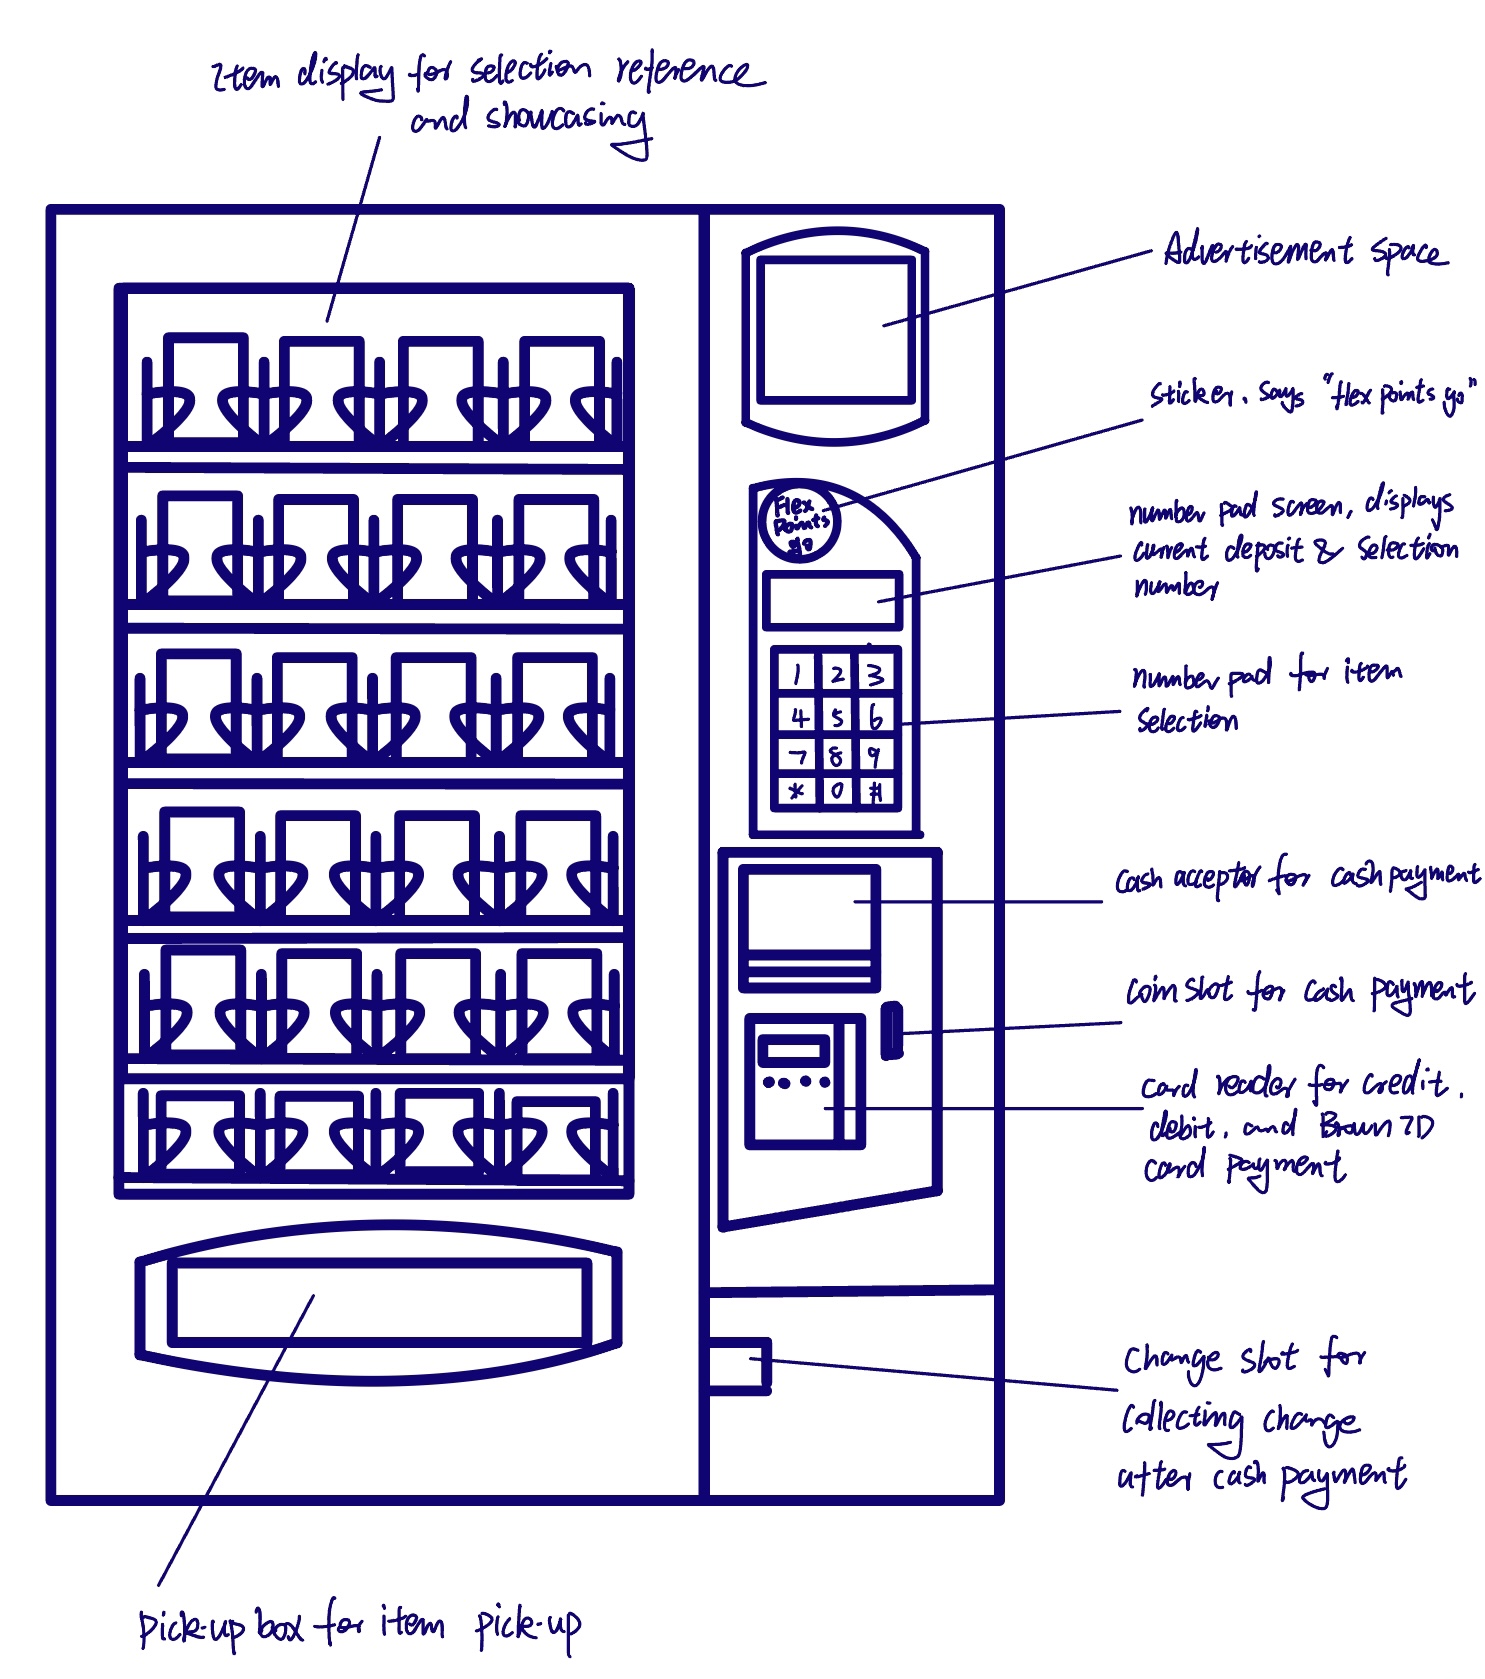 Item display for selection reference
and showcasing
Advertisement space
Sticker, says "flex points go"
Flex
Points
go
number pad screen, displays
current deposit & selection
number
1 2 3
4 5 6
7 8 9
* 0 #
number pad for item
selection
Cash acceptor for cash payment
Coin slot for cash payment
Card reader for credit,
debit, and Brown ID
card payment
Change slot for
collecting change
after cash payment
Pick-up box for item pick-up